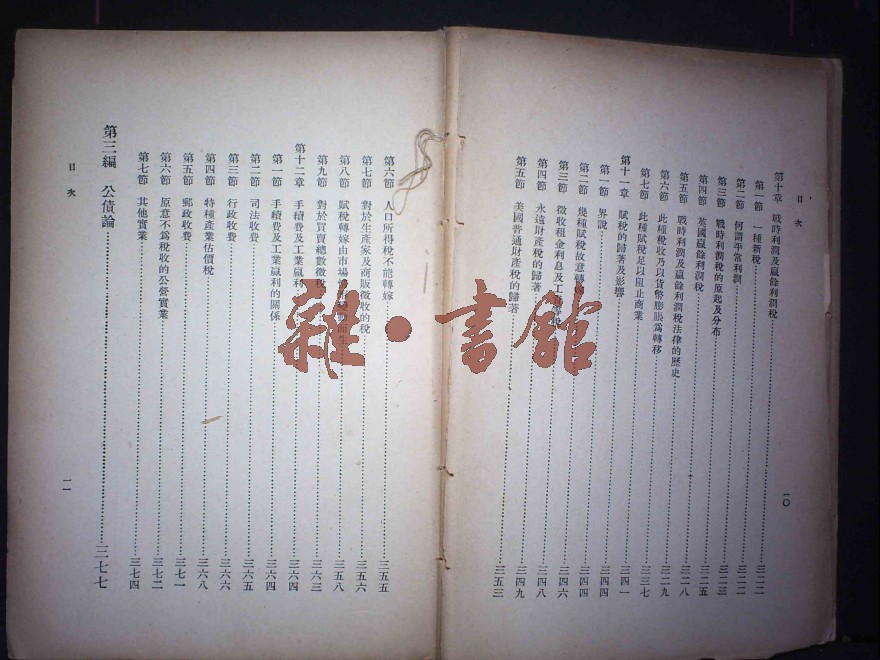 目次
第十章 戰時利潤及贏餘利潤稅……三二二
第一節 一種新稅……三二二
第二節 何謂平常利潤……三二二
第三節 戰時利潤稅的原起及分布……三二三
第四節 英國贏餘利潤稅……三二五
第五節 戰時利潤及贏餘利潤稅法律的歷史……三二八
第六節 此種稅收乃以貨幣膨脹為轉移……三二九
第七節 此種賦稅足以阻止商業……三三七
第十一章 賦稅的歸著及影響……三四一
第一節 界說……三四四
第二節 幾種賦稅故意轉……三四四
第三節 徵收租金利息及工……三四六
第四節 永遠財產稅的歸著……三四八
第五節 美國普通財產稅的歸著……三四九
三五三
一〇
第六節 人口所得稅不能轉嫁……三五五
第七節 對於生產家及商販徵收的稅……三五六
第八節 賦稅轉嫁由市場……而生……三五八
第九節 對於買賣總數徵稅……三六三
第十二章 手續費及工業贏利……三六四
第一節 手續費及工業贏利的關係……三六四
第二節 司法收費……三六五
第三節 行政收費……三六六
第四節 特種產業估價稅……三六八
第五節 郵政收費……三七一
第六節 原意不為稅收的公營實業……三七二
第七節 其他實業……三七四
第三編 公債論……三七七
目次
一一
雜·書館